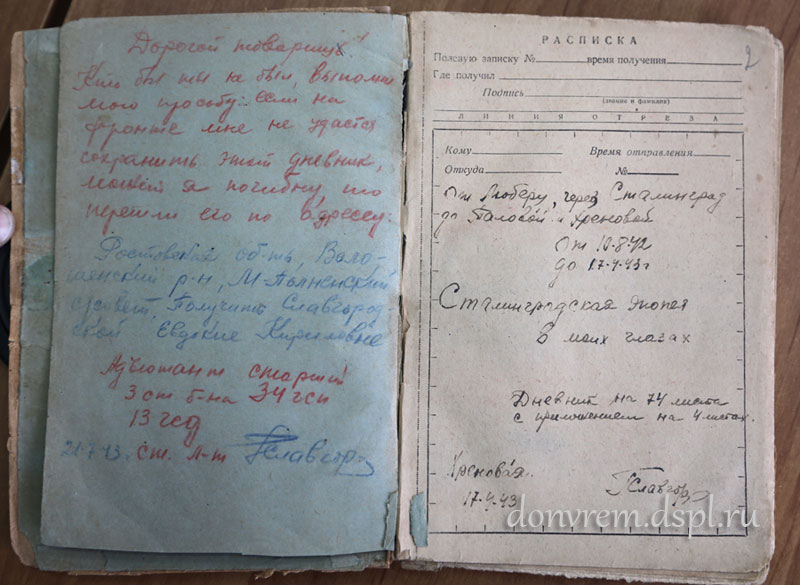 Дорогой товарищ!
Кто бы ты не был, выполни
мою просьбу: если на
фронте мне не удастся
сохранить этот дневник,
может я погибну, то
перешли его по адрессу:
Ростовская об-ть, Воло-
шинский р-н, М-Полненский
с/совет, Получить Славгород-
ской Евдокие Кириловне
Адъютант старший
3 ст б-на 34 гсп
13 гсд
21-7-43. ст. л-т Славгор
2
РАСПИСКА
Полевую записку № время получения
Где получил
Подпись
(звание и фамилия)
ЛИНИЯ ОТРЕЗА
Кому Время отправления
Откуда №
От Люберц, через Сталинград
до Таловой и Хреновой
От 10-8-42
до 17-4-43г
Сталинградская эпопея
в моих глазах
Дневник на 74 листа
с приложением на 4 листах.
Хреновая.
17-4-43 Г Славгор
donvrem.dspl.ru